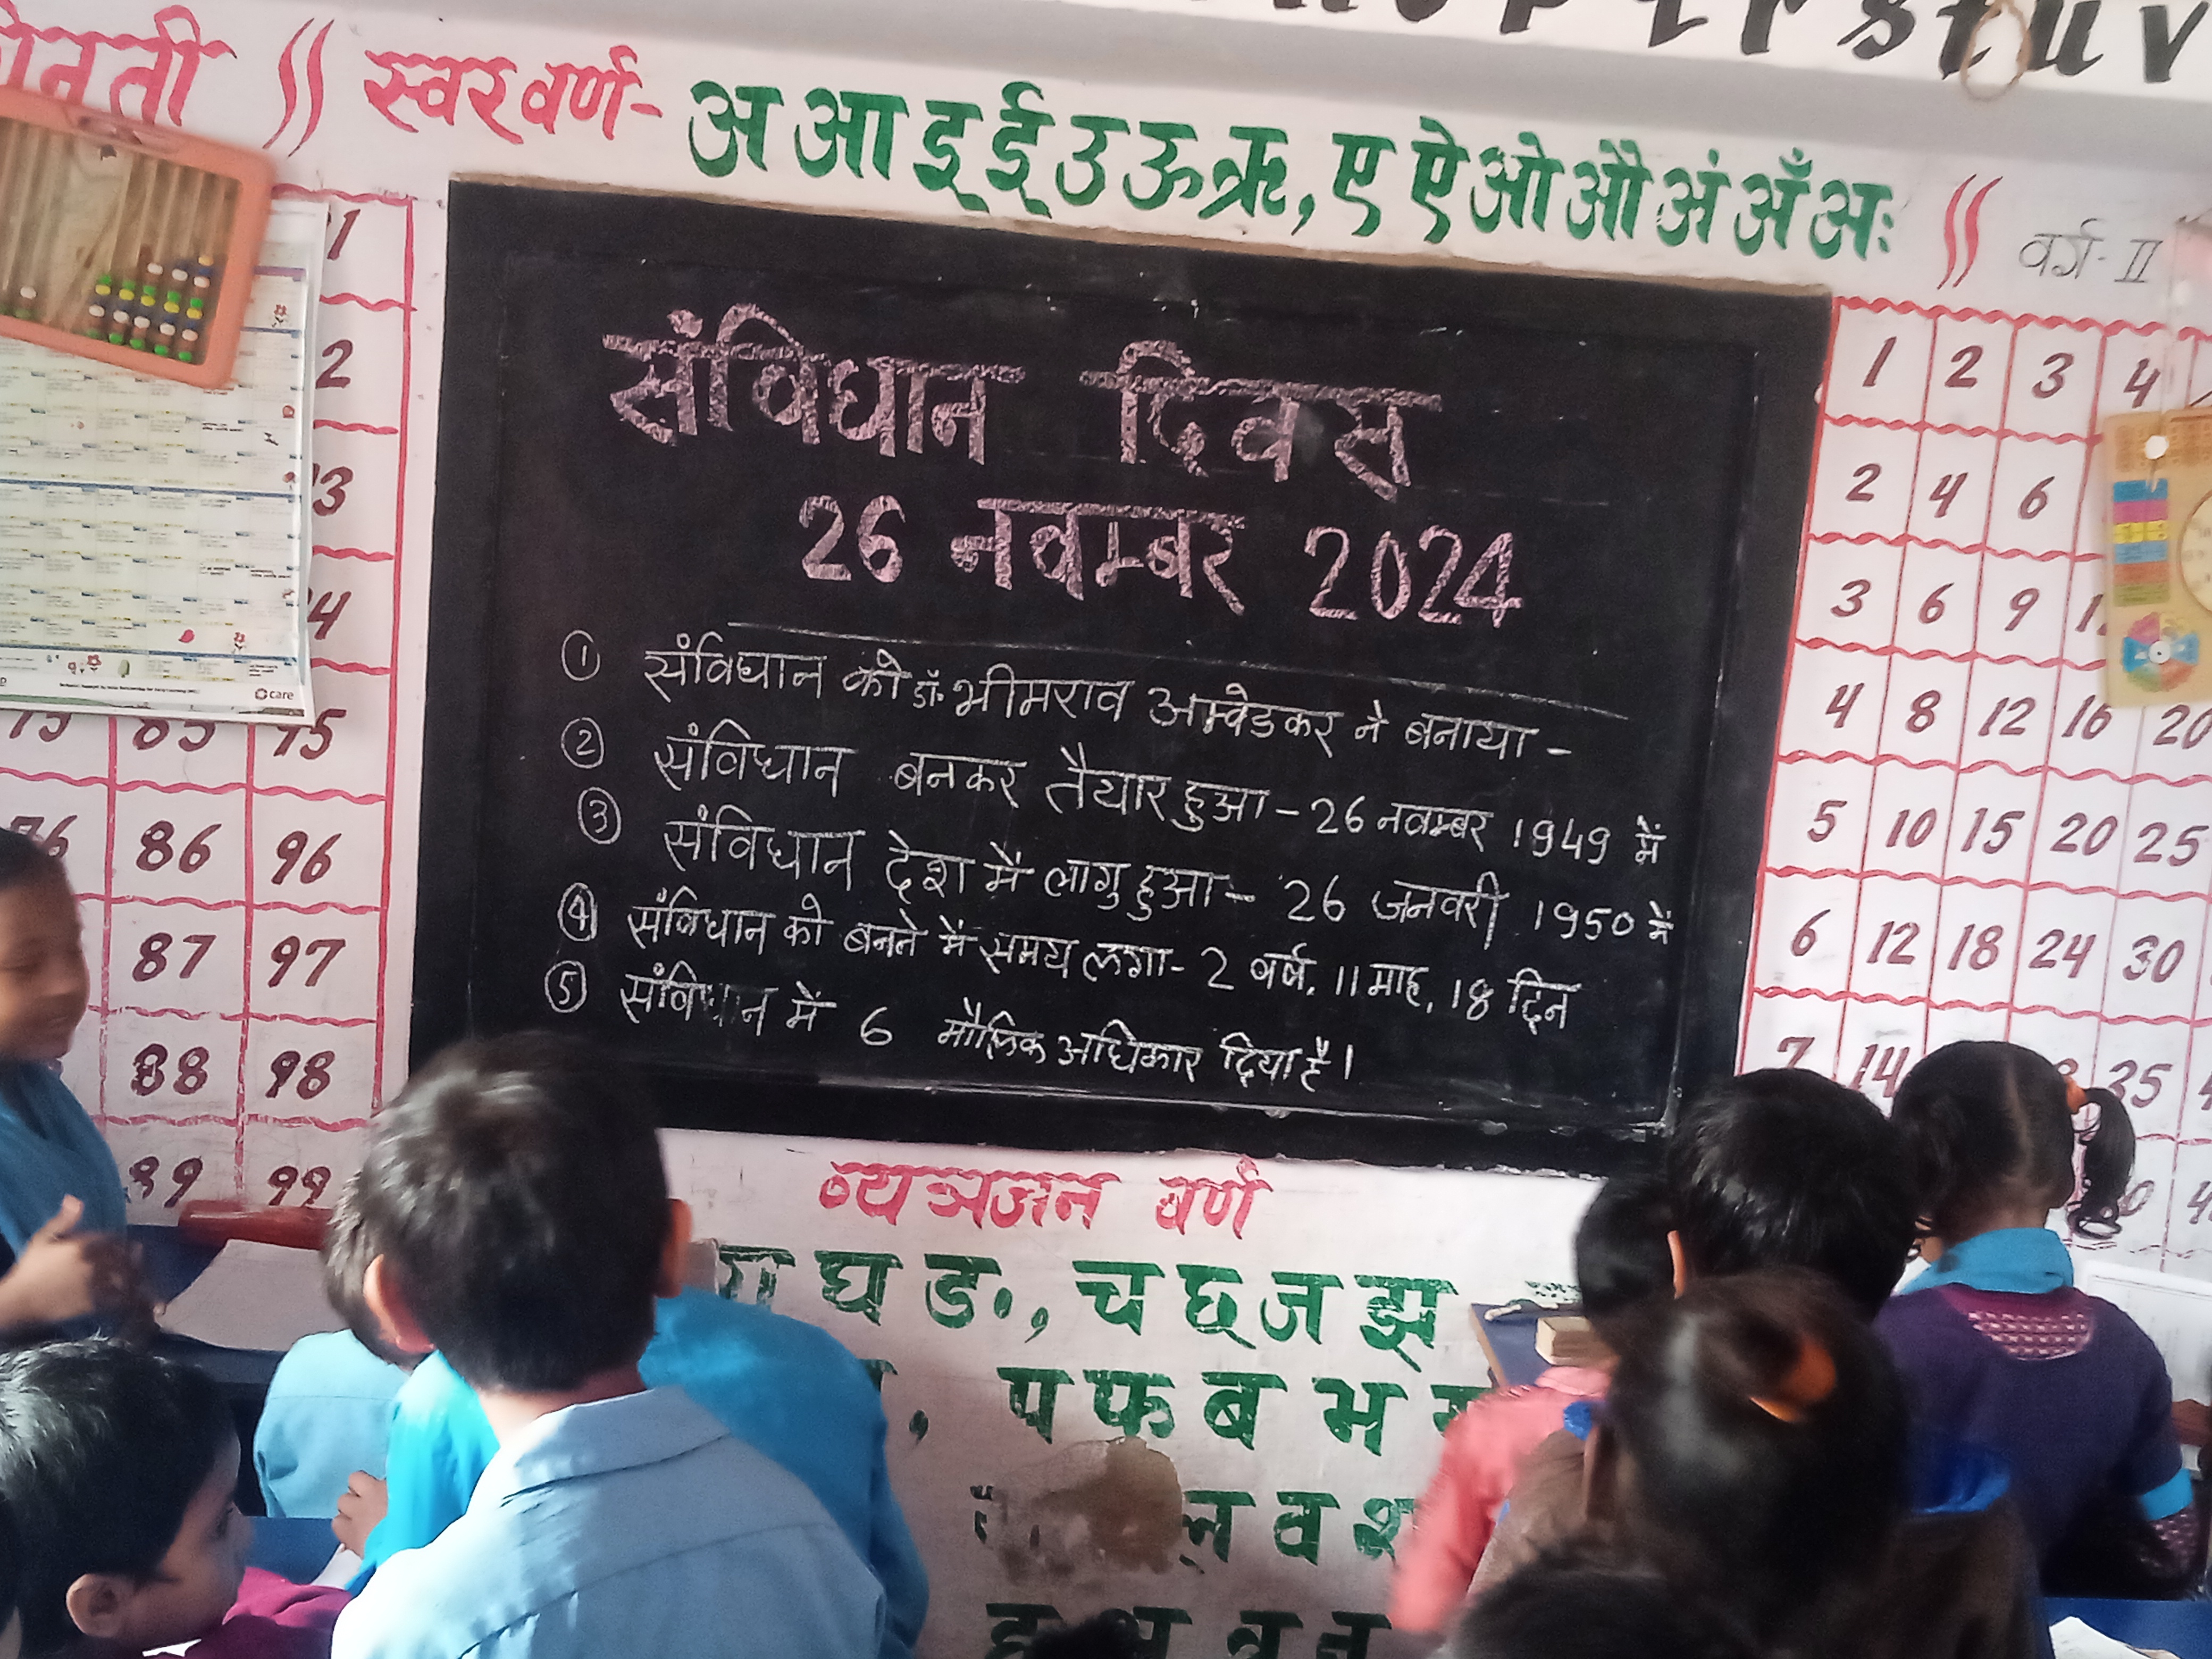 n o p q r s t u v
गिनती || स्वर वर्ण- अ आ इ ई उ ऊ ऋ, ए ऐ ओ औ अं अँ अः ||
वर्ग-II
संविधान दिवस
26 नवम्बर 2024
① संविधान को डॉ॰ भीमराव अम्वेडकर ने बनाया -
② संविधान बनकर तैयार हुआ - 26 नवम्बर 1949 में
③ संविधान देश मे लागु हुआ - 26 जनवरी 1950 में
④ संविधान को बनने में समय लगा - 2 वर्ष, 11 माह, 18 दिन
⑤ संविधान में 6 मौलिक अधिकार दिया है।
care
75 85 95
76 86 96
87 97
88 98
89 99
1 2 3 4
2 4 6
3 6 9
4 8 12 16 20
5 10 15 20 25
6 12 18 24 30
7 14 35
व्यञ्जन वर्ण
ग घ ङ, च छ ज झ
, प फ ब भ
ल व श